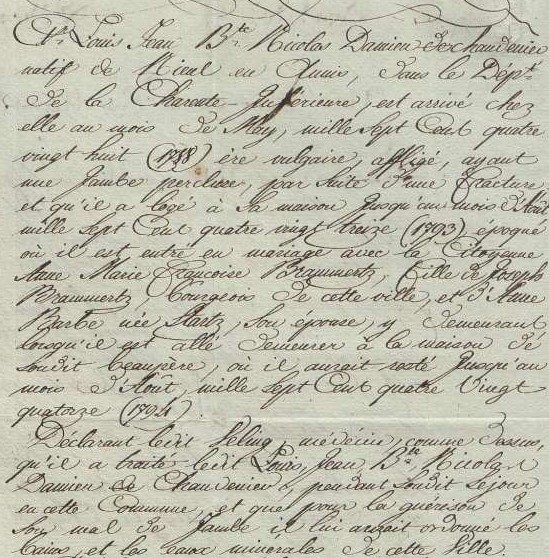 Cn. Louis Jean Bte. Nicolas Damien de Chaudenier
natif de Nieul en Aunis, dans le Dépt.
de la Charente-Inférieure, est arrivé chez
elle au mois de May, mille Sept Cent quatre
vingt huit (1788) ère vulgaire, affligé, ayant
une Jambe percluse, par Suite d'une fracture
et qu'il a logé à Sa maison Jusqu'au mois d'Aout
mille sept Cent quatre vingt treize (1793) époque
où il est entré en mariage avec la Citoyenne
Anne Marie Françoise Brammertz, Fille de Joseph
Brammertz, Bourgeois de cette ville, et d'Anne
Barbe née Startz, Son épouse, y demeurant
lorsqu'il est allé demeurer à la maison de
Soudit beaupère, où il aurait resté Jusqu'au
mois d'Aout, mille Sept Cent quatre Vingt
quatorze (1794).
Déclarant ledit médécin, comme dessus,
qu'il a traité ledit Louis, Jean, Bte. Nicolas
Damien de Chaudenier, pendant Soudit Sejour
en cette Commune, et que pour la guérison de
Son mal de Jambe il lui aurait ordonné les
bains, et les eaux minérales de cette Ville.